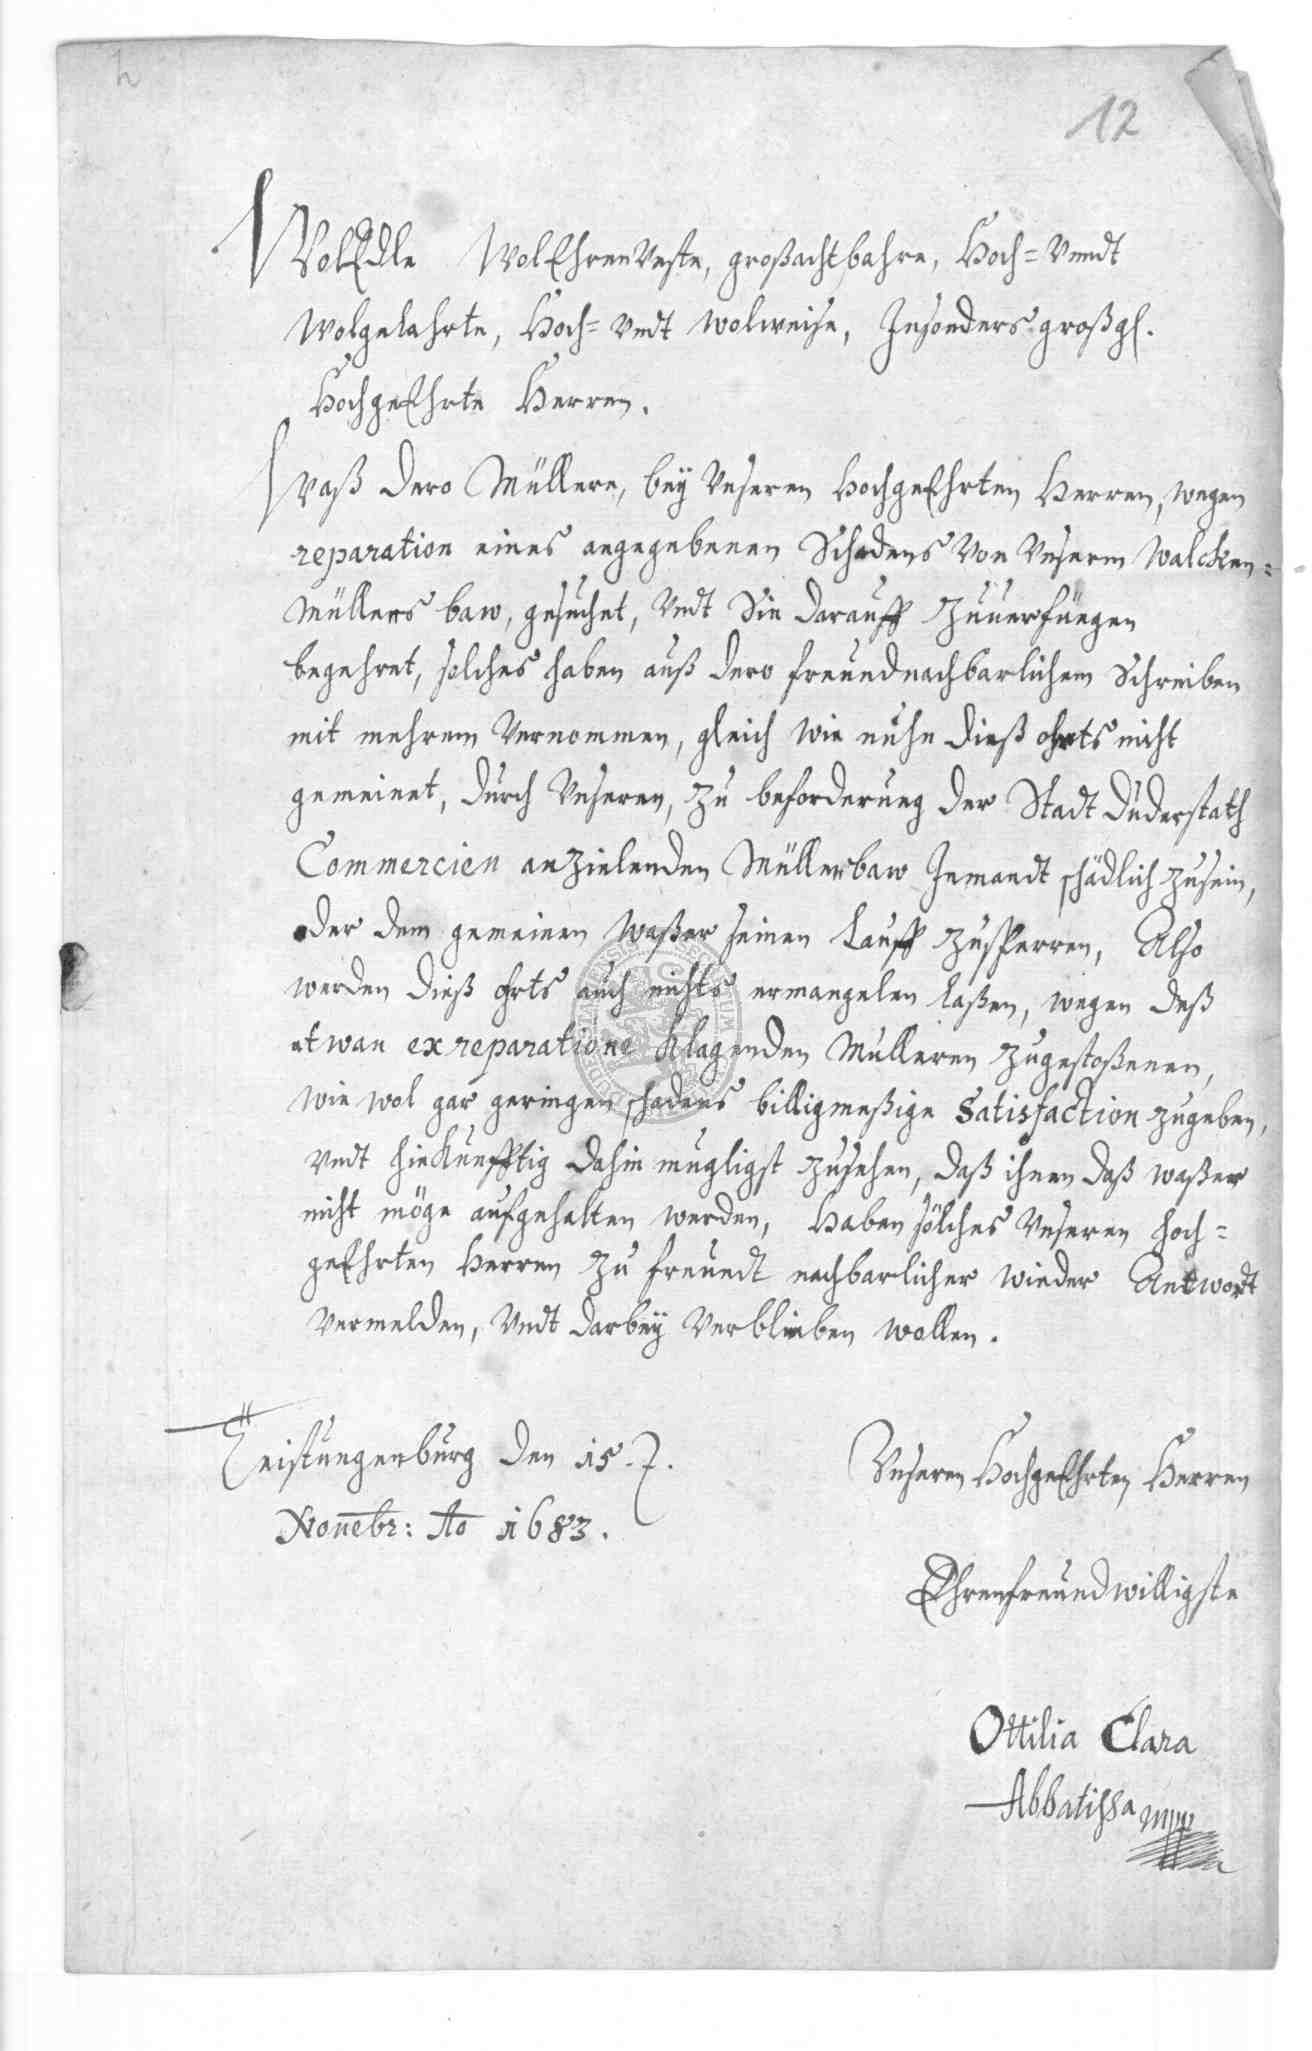 12
WolEdle WolEhrenVeste, großachtbahre, Hoch= Vnndt
Wolgelahrte, Hoch= Vndt wolweise, Insonders großgl.
HochgeEhrte Herren.
Waß dero Müllere, beÿ Vnseren HochgeEhrten Herren, wegen
reparation eines angegebenen Schadens Von Vnserm Walcken=
Müllers baw, gesuchet, Vndt Sie darauff zuuerfüegen
begehret, solches haben auß dero freundnachbarlichem Schreiben
mit mehrem Vernommen, gleich wie nuhn dieß ohrts nicht
gemeinet, durch Vnseren, zu beforderung der Stadt Duderstath
Commercien anzielenden Müllenbaw Jemandt schädlich zusein,
oder dem gemeinen waßer seinen Lauff zusperren, Also
werden dieß ohrts auch nichts ermangelen laßen, wegen deß
etwan ex reparatione klagenden Mülleren zugestoßenen,
wie wol gar geringen schadens billigmeßige Satisfaction zugeben,
Vndt hiekünfftig dahin mugligst zusehen, daß ihnen daß waßer
nicht möge aufgehalten werden, Haben sölches Vnseren hoch=
geEhrten Herren zu freundt nachbarlicher wieder Antwordt
Vermelden, Vndt darbeÿ Verblieben wollen.
Teistungenburg den 15. t.
Nouebr: Ao 1683.
Vnseren HochgeEhrten Herren
Ehrenfreundwilligste
Ottilia Clara
Abbatissa mpp